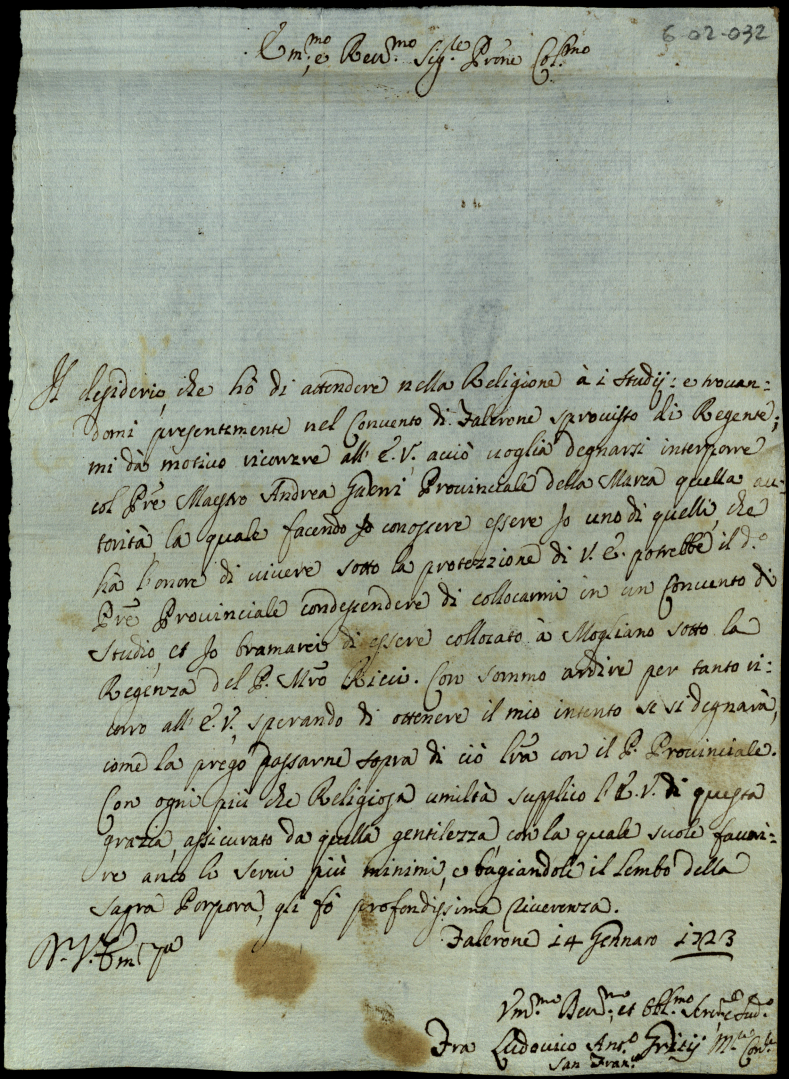 6-02-032
Em:mo e Reu.mo Sig.re Prōne Col.mo
Il desiderio, che hò di attendere nella Religione à i studij: e trouan:
domi presentemente nel Conuento di Falerone sprouisto di Regente;
mi dà motiuo ricorrere all' E.V. acciò uoglia degnarsi interporre
col Prē Maestro Andrea Provinciale della Marca quella au:
torità, la quale facendo conoscere essere Io uno di quelli, che
hà l'onore di uiuere sotto la protezzione di V.E. potrebbe il d.o
Prē Prouinciale condescendere di collocarmi in un Conuento di
Studio, et Io bramarei di essere collocato à Mogliano sotto la
Regenza del P. Mrō Ricci. Con sommo ardire per tanto ri:
corro all' E.V., sperando di ottenere il mio intento se si degnarà,
come la prego passarne sopra di ciò lrā con il P. Prouinciale.
Con ogni più che Religiosa umiltà supplico l'E.V. di questa
grazia, assicurato da quella gentilezza, con la quale suole fauori:
re anco li serui più minimi, e bagiandole il lembo della
Sagra Porpora, gli fò profondissima riuerenza.
Falerone 14 Gennaro 1723
D. V. Em.za
Vm.mo Deu.mo, et Obl.mo
Fra Ludouico Ant.o
San Fran.co